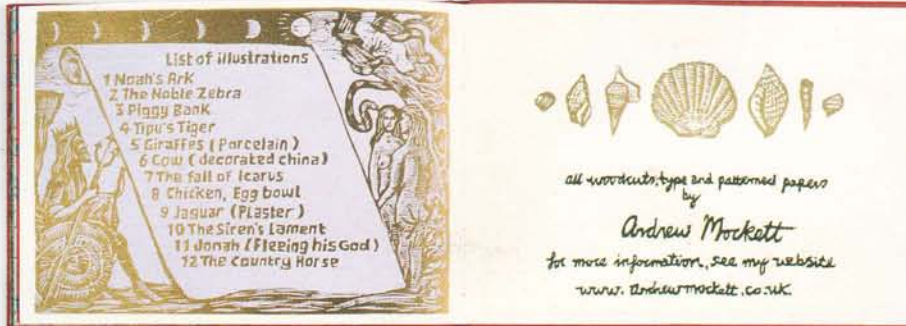 List of illustrations
1 Noah's Ark
2 The Noble Zebra
3 Piggy Bank
4 Tipu's Tiger
5 Giraffes (Porcelain)
6 Cow (decorated china)
7 The fall of Icarus
8 Chicken, Egg bowl
9 Jaguar (Plaster)
10 The Siren's Lament
11 Jonah (Fleeing his God)
12 The Country Horse
all woodcuts, type and patterned papers
by
Andrew Mockett
for more information, see my website
www.andrewmockett.co.uk